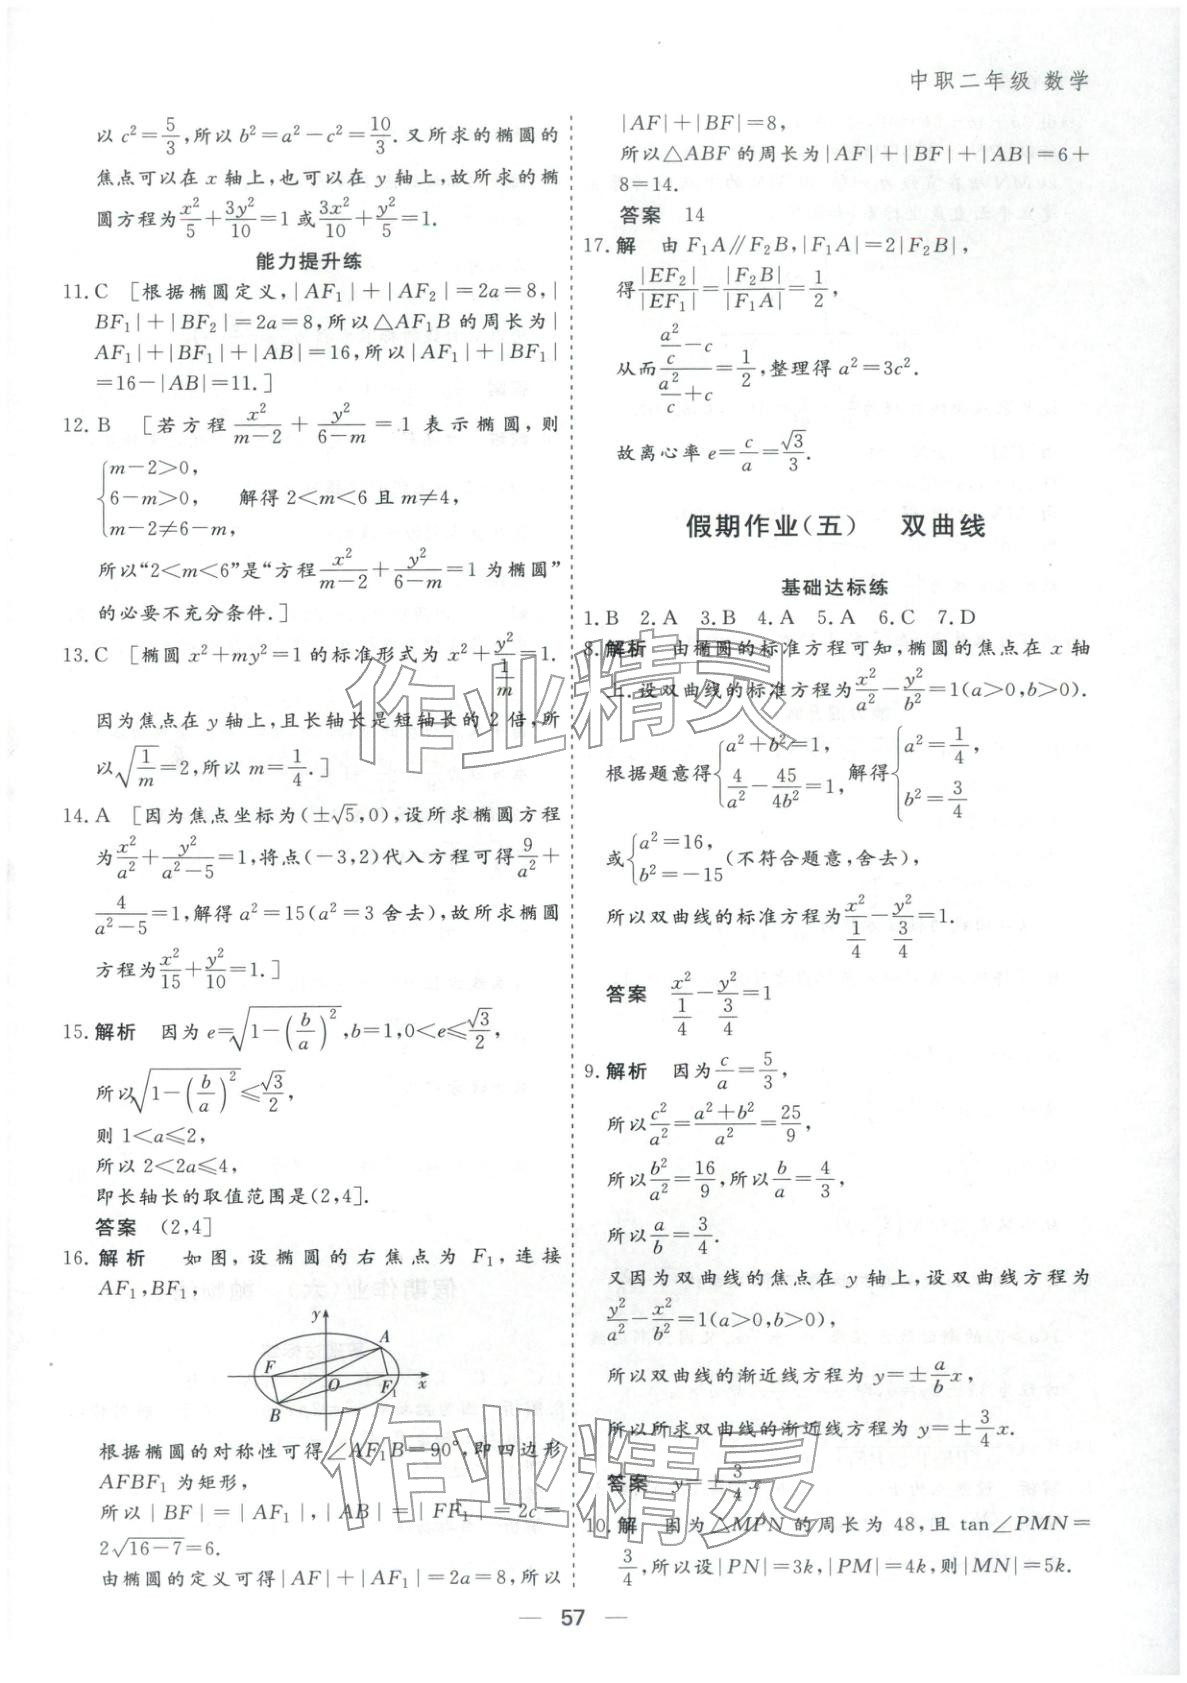 中职二年级 数学
以 c²=5/3,所以 b²=a²−c²=10/3.又所求的椭圆的
焦点可以在 x 轴上,也可以在 y 轴上,故所求的椭
圆方程为x²/5+3y²/10=1 或3x²/10+y²/5=1.
能力提升练
11.C [根据椭圆定义,|AF₁|+|AF₂|=2a=8,|
BF₁|+|BF₂|=2a=8,所以△AF₁B 的周长为|
AF₁|+|BF₁|+|AB|=16,所以|AF₁|+|BF₁|
=16−|AB|=11.]
12.B [若方程x²/(m−2)+y²/(6−m)=1 表示椭圆,则
{m−2>0,
6−m>0, 解得 2<m<6 且 m≠4,
m−2≠6−m,
所以“2<m<6”是“方程x²/(m−2)+y²/(6−m)=1 为椭圆”
的必要不充分条件.]
13.C [椭圆 x²+my²=1 的标准形式为 x²+y²/(1/m)=1.
因为焦点在 y 轴上,且长轴长是短轴长的 2 倍,所
以√(1/m)=2,所以 m=1/4.]
14.A [因为焦点坐标为(±√5,0),设所求椭圆方程
为x²/a²+y²/(a²−5)=1,将点(−3,2)代入方程可得9/a²+
4/(a²−5)=1,解得 a²=15(a²=3 舍去),故所求椭圆
方程为x²/15+y²/10=1.]
15.解析 因为 e=√(1−(b/a)²),b=1,0<e≤√3/2,
所以√(1−(b/a)²)≤√3/2,
则 1<a≤2,
所以 2<2a≤4,
即长轴长的取值范围是(2,4].
答案 (2,4]
16.解析 如图,设椭圆的右焦点为 F₁,连接
AF₁,BF₁,
y
A
F
O
F₁
x
B
根据椭圆的对称性可得∠AF₁B=90°,即四边形
AFBF₁为矩形,
所以|BF|=|AF₁|,|AB|=|FF₁|=2c=
2√(16−7)=6.
由椭圆的定义可得|AF|+|AF₁|=2a=8,所以
|AF|+|BF|=8,
所以△ABF 的周长为|AF|+|BF|+|AB|=6+
8=14.
答案 14
17.解 由 F₁A∥F₂B,|F₁A|=2|F₂B|,
得|EF₂|/|EF₁|=|F₂B|/|F₁A|=1/2,
从而(a²/c−c)/(a²/c+c)=1/2,整理得 a²=3c².
故离心率 e=c/a=√3/3.
假期作业(五) 双曲线
基础达标练
1.B 2.A 3.B 4.A 5.A 6.C 7.D
8.解析 由椭圆的标准方程可知,椭圆的焦点在 x 轴
上.设双曲线的标准方程为x²/a²−y²/b²=1(a>0,b>0).
根据题意得{a²+b²=1, 4/a²−45/4b²=1,解得{a²=1/4, b²=3/4
或{a²=16, b²=−15(不符合题意,舍去),
所以双曲线的标准方程为x²/(1/4)−y²/(3/4)=1.
答案 x²/(1/4)−y²/(3/4)=1
9.解析 因为c/a=5/3,
所以c²/a²=(a²+b²)/a²=25/9,
所以b²/a²=16/9,所以b/a=4/3,
所以a/b=3/4.
又因为双曲线的焦点在 y 轴上,设双曲线方程为
y²/a²−x²/b²=1(a>0,b>0),
所以双曲线的渐近线方程为 y=±(a/b)x,
所以所求双曲线的渐近线方程为 y=±(3/4)x.
答案 y=±(3/4)x
10.解 因为△MPN 的周长为 48,且 tan∠PMN=
3/4,所以设|PN|=3k,|PM|=4k,则|MN|=5k.
作业精灵
作业精灵
— 57 —